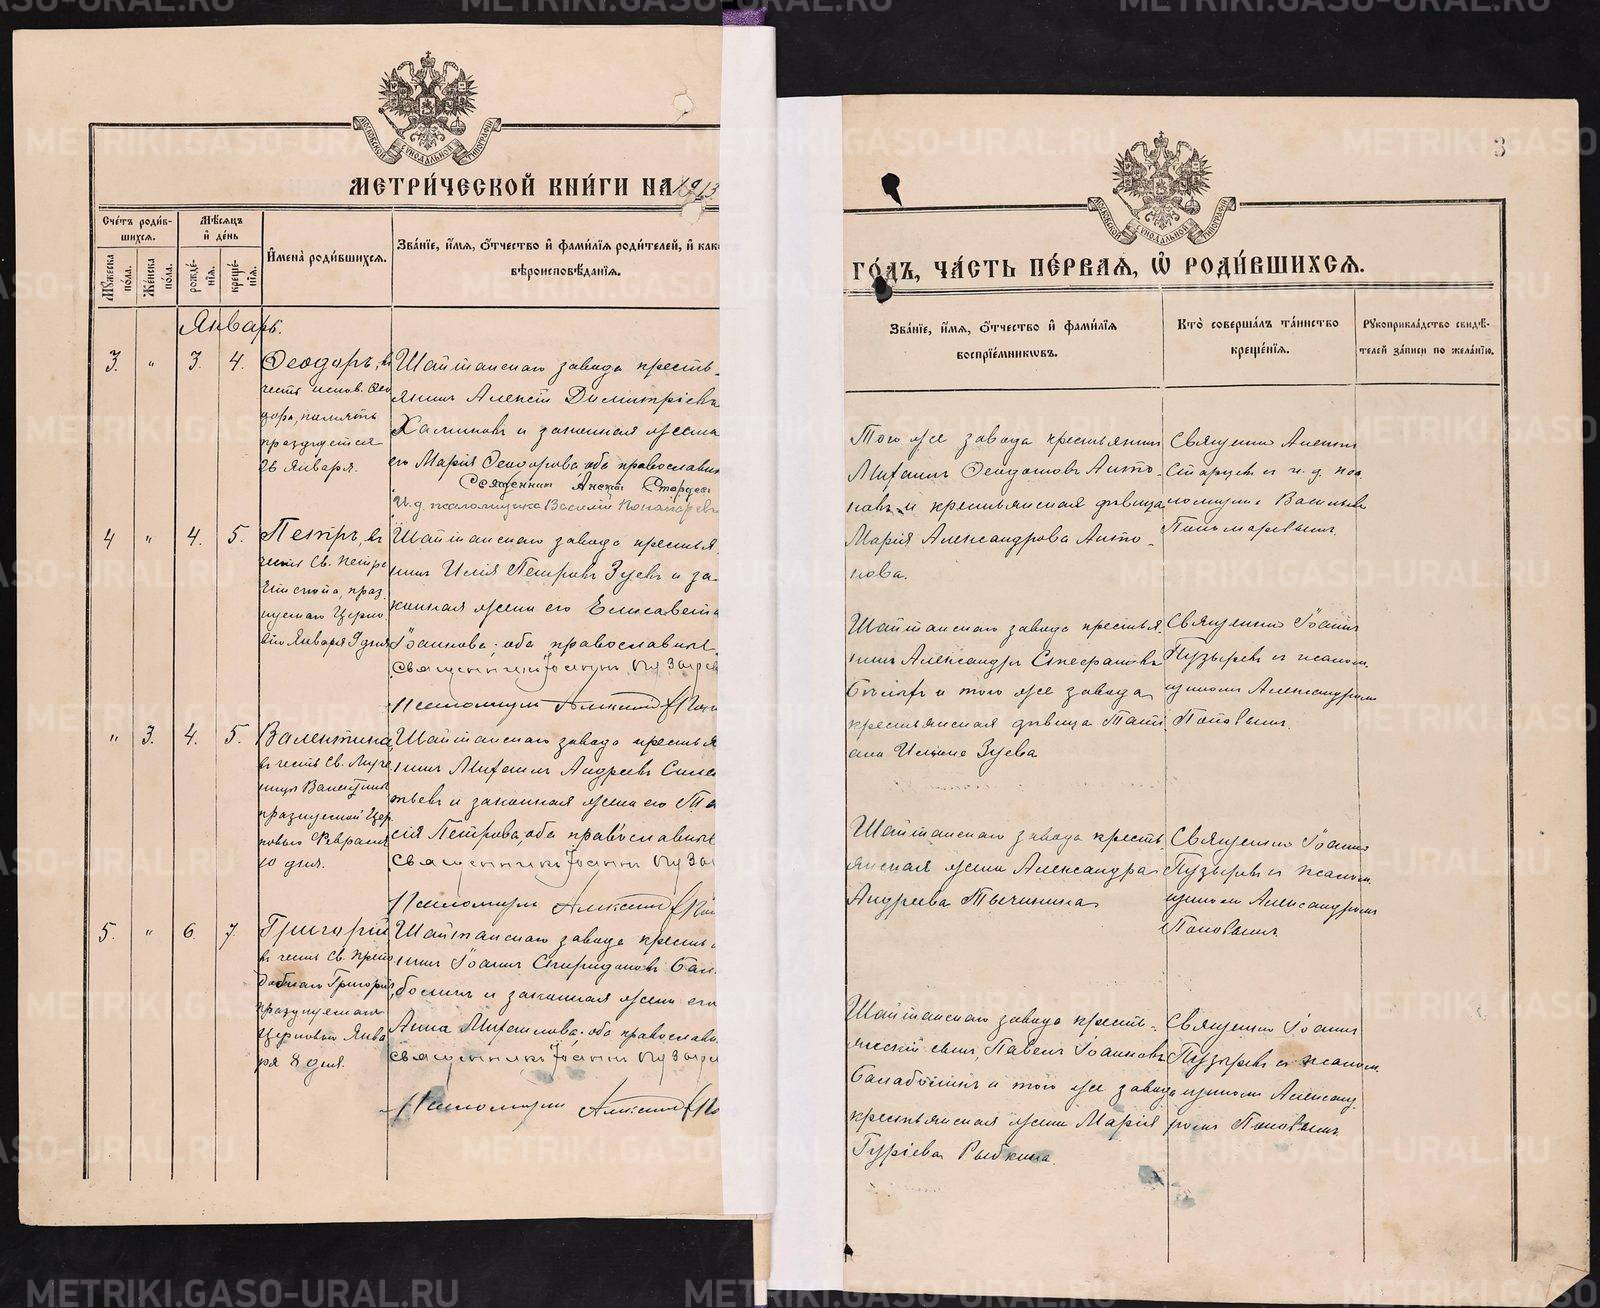 МЕТРИ́ЧЕСКОЙ КНИ́ГИ НА 1913
Сче́тъ роди́в-
шихсѧ.
Мѣ́сѧцъ
и҆ де́нь
И҆мена̀ роди́вшихсѧ.
Зва́нїе, и҆́мѧ, ѻ҆́тчество и҆ фами́лїѧ роди́телей, и҆ как
вѣроисповѣ́данїѧ.
Мꙋ́жеска
по́ла.
Же́нска
по́ла.
рожде́-
нїѧ.
креще́-
нїѧ.
Январь.
3. " 3. 4.
Ѳеодоръ, въ
честь испов. Ѳео
дора, память
празднуется
26 Января.
Шайтанскаго завода кресть-
янинъ Алексій Димитріевъ
и законная жена
его Марія Ѳеодорова, оба православны
Священникъ
И. д. псаломщика Василій Пономаревъ
4 " 4. 5.
Петръ, въ
честь Св. Петра
праз
днуемаго Церко
вію Января 9 дня
Шайтанскаго завода крестья
нинъ Илія Петровъ Зуевъ и за-
конная жена его Елисавета
Іоаннова, оба православные.
Священникъ Іоаннъ Пузырев
Псаломщикъ Александръ
" 3. 4. 5.
Валентина,
въ честь Св. Муче
ницы Валентины
празднуемой Цер
ковью Февраля
10 дня.
Шайтанскаго завода крестья
нинъ Михаилъ Андреевъ
и законная жена его Та
сія Петрова, оба православные
Священникъ Іоаннъ Пузы
Псаломщикъ Александръ
5. " 6. 7.
Григорій
въ честь Св. Препо
добнаго Григорія,
празднуемаго
Церковью Янва
ря 8 дня.
Шайтанскаго завода кресть
нинъ Іоаннъ Спиридоновъ Бала
бошинъ и законная жена его
Анна Михаилова, оба православн
Священникъ Іоаннъ Пузыре
Псаломщикъ Александръ По
3
ГО́ДЪ, ЧА́СТЬ ПЕ́РВАѦ, Ѽ РОДИ́ВШИХСѦ.
Зва́нїе, и҆́мѧ, ѻ҆́тчество и҆ фами́лїѧ
воспрїе́мникѡвъ.
Кто̀ соверша́лъ та́инство
креще́нїѧ.
Рꙋкоприкла́дство свидѣ́-
телей за́писи по жела́нїю.
Того же завода крестьянинъ
Михаилъ Анто-
новъ и крестьянская дѣвица
Марія Александрова Анто-
нова.
Священникъ Алексій
и и. д. пса
ломщика Василій
Пономаревымъ.
Шайтанскаго завода крестья
нинъ Александръ Стефановъ
и того же завода
крестьянская дѣвица Тати
ана Иліина Зуева
Священникъ Іоаннъ
Пузыревъ съ псалом.
щикомъ Александромъ
Поповымъ.
Шайтанскаго завода кресть
янская жена Александра
Андреева
Священникъ Іоаннъ
Пузыревъ съ псалом
щикомъ Александромъ
Поповымъ.
Шайтанскаго завода кресть-
янскій сынъ Павелъ Іоанновъ
Балабошинъ и того же завода
крестьянская жена Марія
Гуріева Рыбкина.
Священникъ Іоаннъ
Пузыревъ съ псалом.
щикомъ Александ-
ромъ Поповымъ.